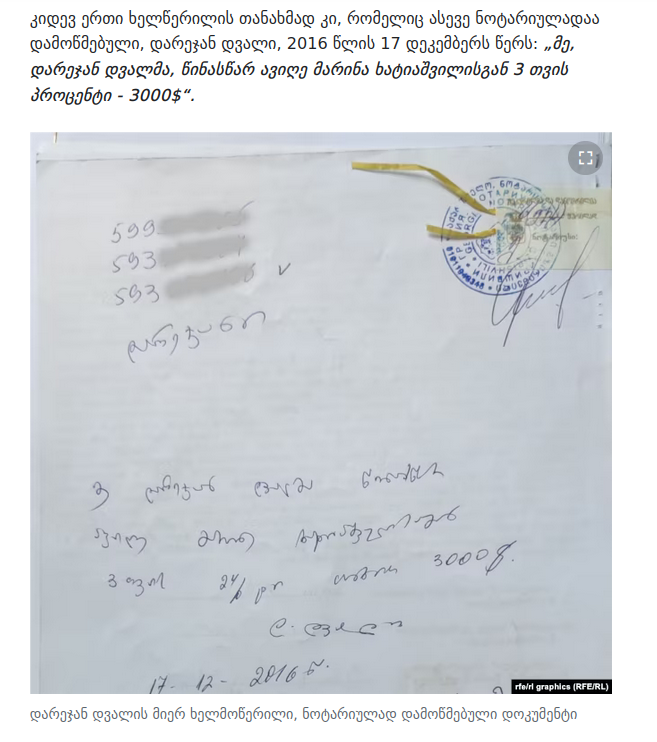 კიდევ ერთი ხელწერილის თანახმად კი, რომელიც ასევე ნოტარიულადაა
დამოწმებული, დარეჯან დვალი, 2016 წლის 17 დეკემბერს წერს: „მე,
დარეჯან დვალმა, წინასწარ ავიღე მარინა ხატიაშვილისგან 3 თვის
პროცენტი - 3000$“.
599
593
593 v
დარეჯანი
მე დარეჯან დვალმა წინასწარ
ავიღე მარინა ხატიაშვილისგან
3 თვის 3000$.
დ. დვალი
17- 12- 2016 წ.
rfe/rl graphics (RFE/RL)
დარეჯან დვალის მიერ ხელმოწერილი, ნოტარიულად დამოწმებული დოკუმენტი